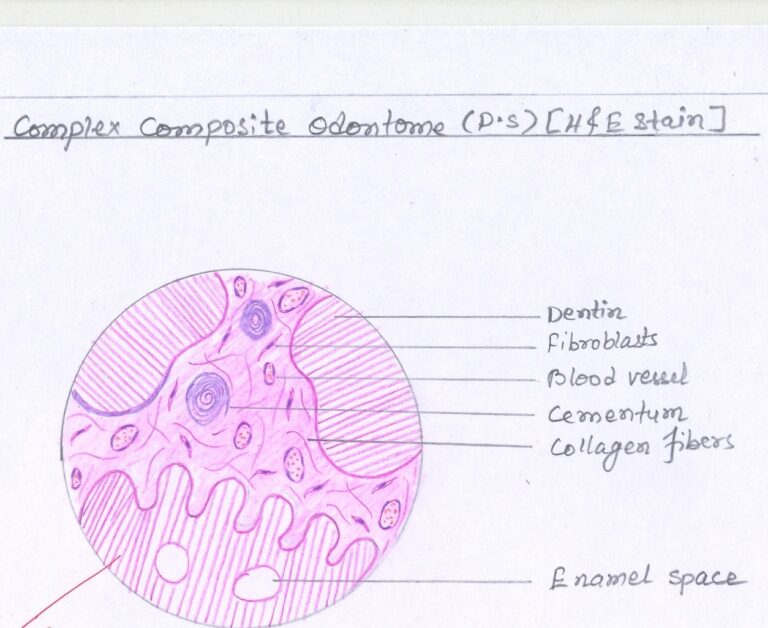 Complex Composite Odontome (D.S) [H&E Stain]
Dentin
Fibroblasts
Blood vessel
Cementum
Collagen fibers
Enamel space